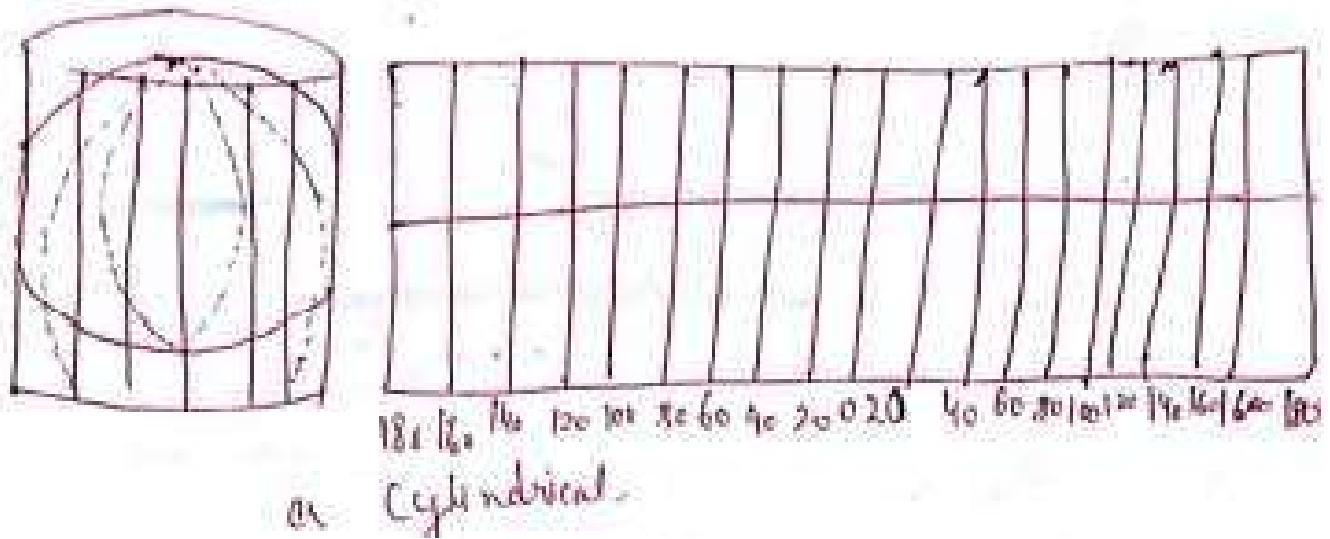 180 160 140 120 100 80 60 40 20 0 20 40 60 80 100 120 140 160 180
a Cylindrical